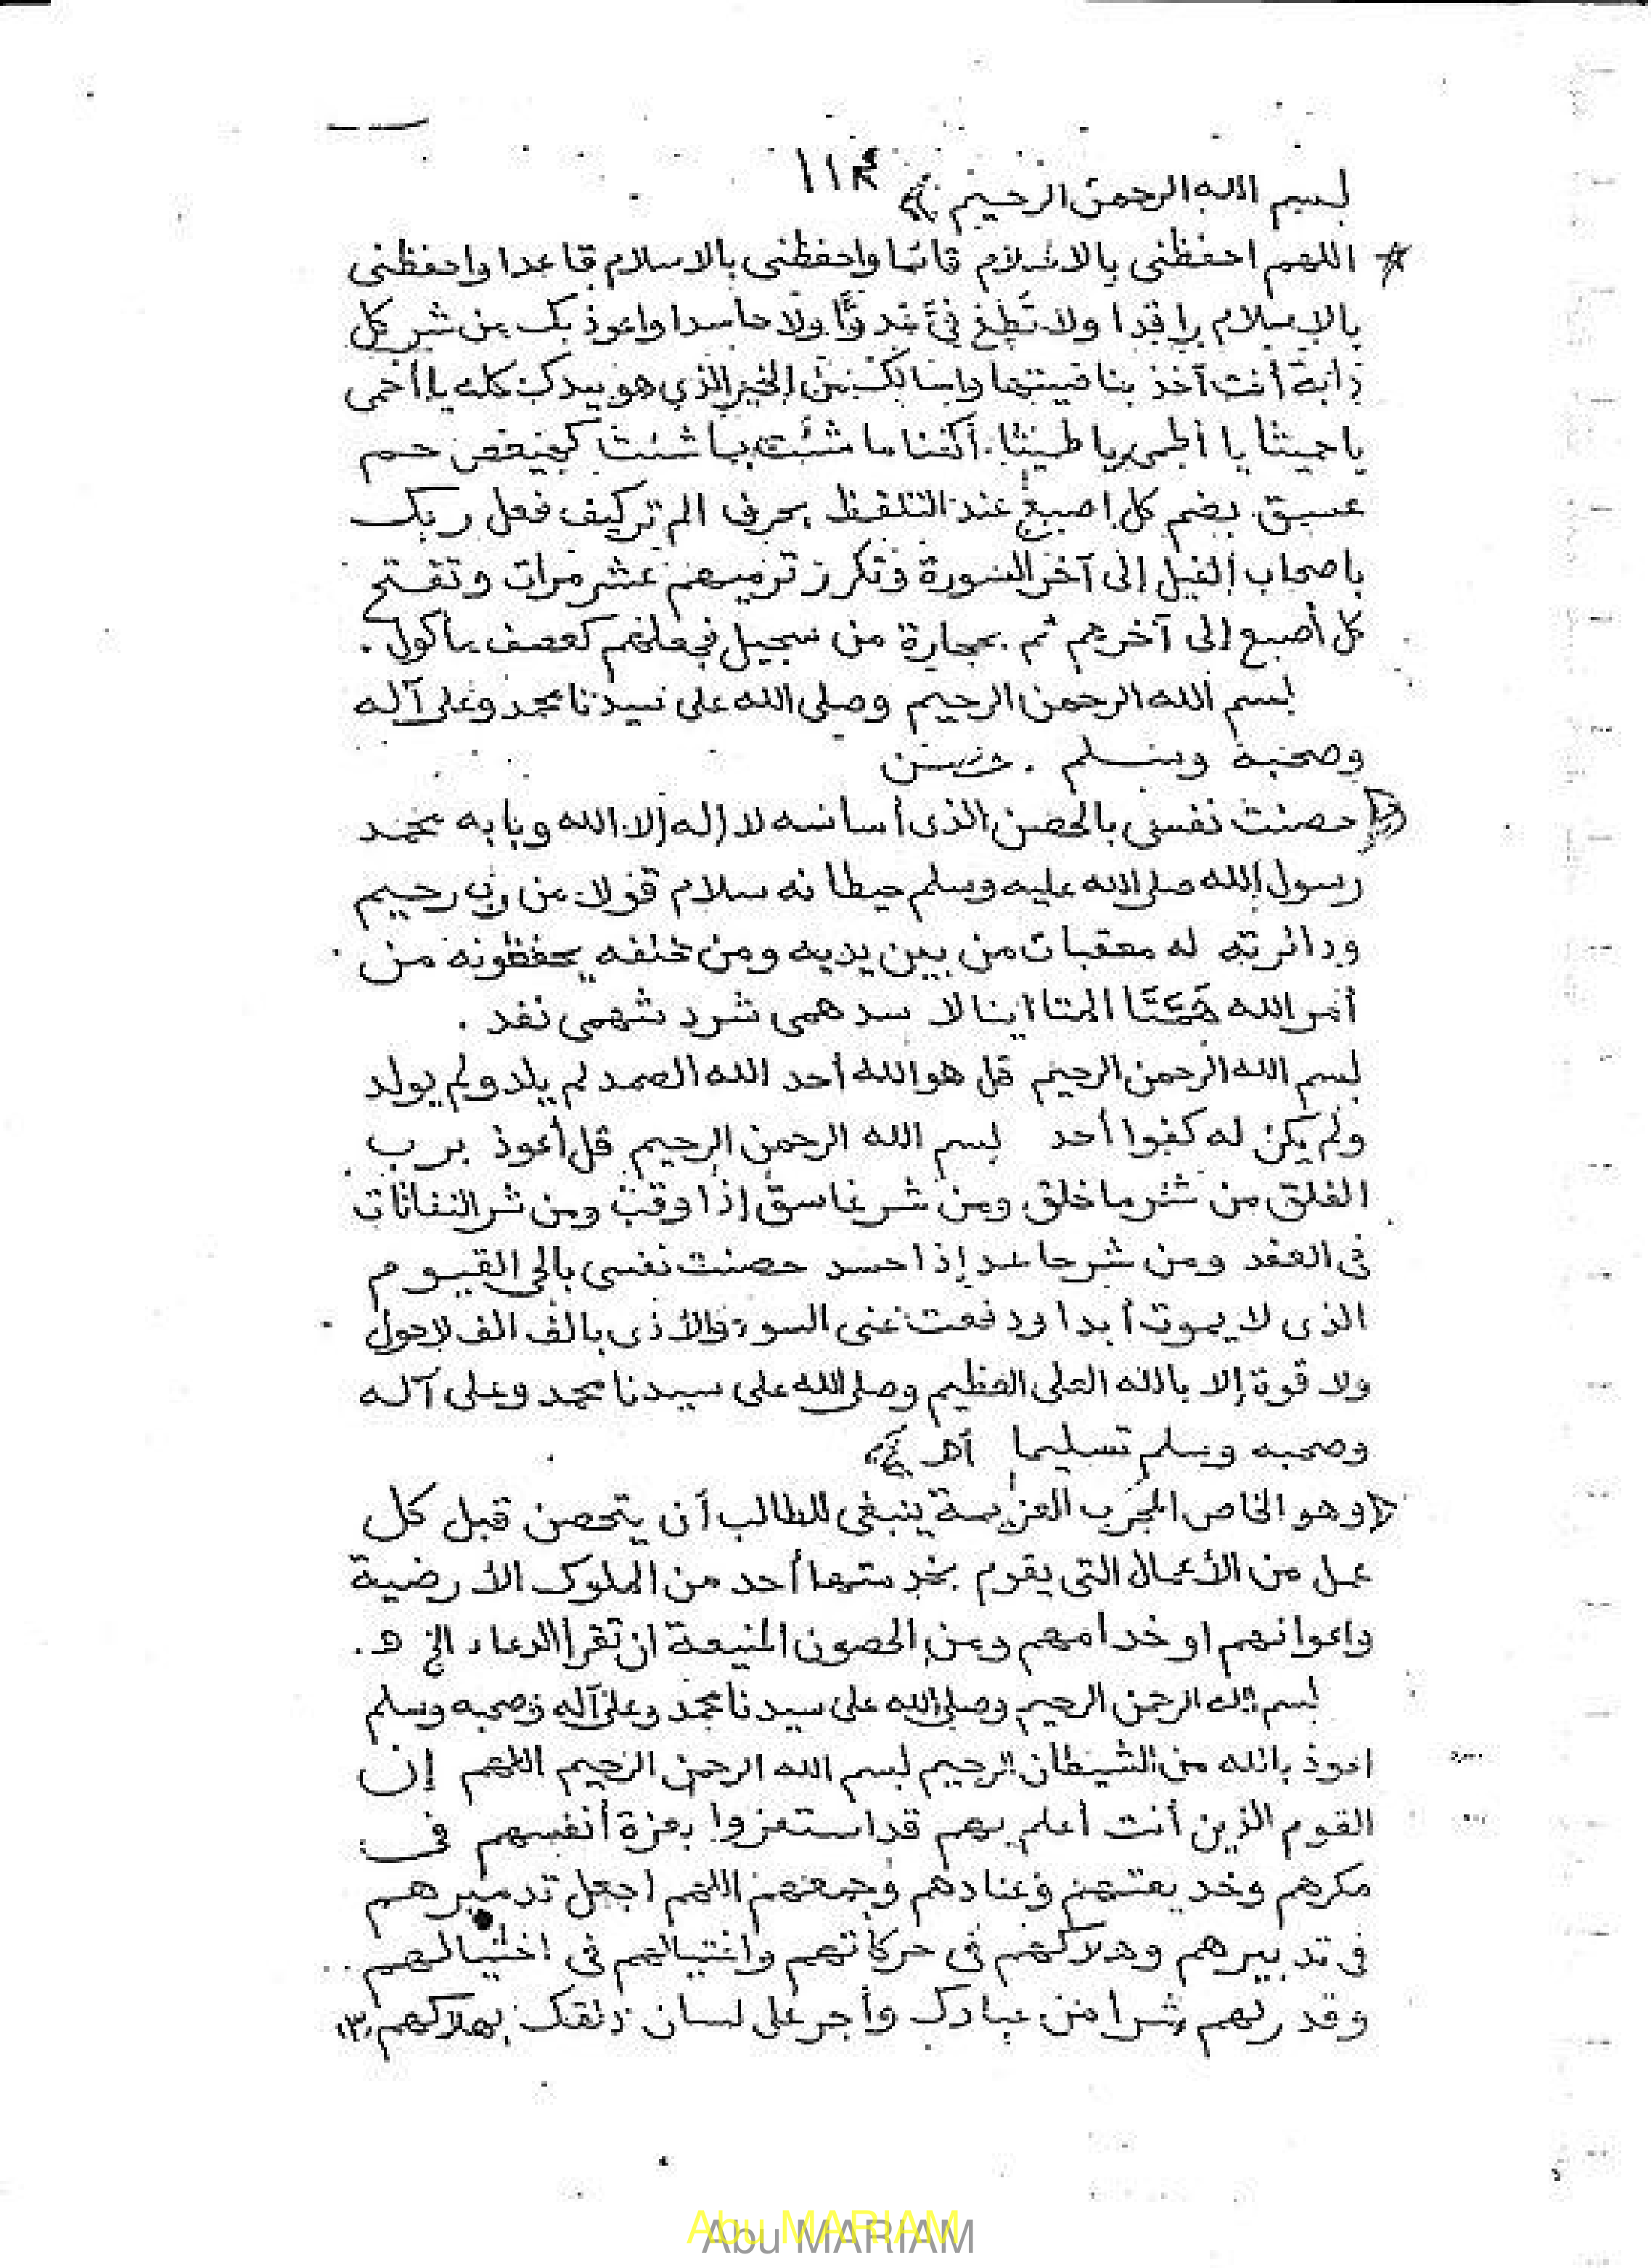 ١١٤
بسم الله الرحمن الرحيم
اللهم احفظنى بالاسلام قائما واحفظنى بالاسلام قاعدا واحفظنى
بالاسلام راقدا ولا تطغ فيّ عدوًّا ولا حاسدا واعوذ بك من شر كل
دابة أنت آخذ بناصيتها واسالك من الخير الذي هو بيدك كله يا أحمى
يا حميثا يا أطمى يا طميثا أكفنا ما شئت بما شئت كهيعص حم
عسق بضم كل اصبع عند التلفظ بحرف الم تر كيف فعل ربك
باصحاب الفيل إلى آخر السورة وتكرر ترميهم عشر مرات وتفتح
كل أصبع إلى آخرهم ثم بحجارة من سجيل فجعلهم كعصف مأكول .
بسم الله الرحمن الرحيم وصلى الله على سيدنا محمد وعلى آله
وصحبة وسلم .
حصنت نفسى بالحصن الذى أساسه لا إله إلا الله وبابه محمد
رسول الله صلى الله عليه وسلم حيطانه سلام قولا من رب رحيم
ودائرته له معقبات من بين يديه ومن خلفه يحفظونه من
أمر الله المتا اينا لا سد همى شرد شهمى نفد .
بسم الله الرحمن الرحيم قل هو الله أحد الله الصمد لم يلد ولم يولد
ولم يكن له كفوا أحد بسم الله الرحمن الرحيم قل أعوذ برب
الفلق من شر ما خلق ومن شر غاسق إذا وقب ومن شر النفاثات
فى العقد ومن شر حاسد إذا حسد حصنت نفسى بالحى القيوم
الذى لا يموت أبدا ودفعت عنى السوء والأذى بالف الف لاحول
ولا قوة إلا بالله العلى العظيم وصلى الله على سيدنا محمد وعلى آله
وصحبه وسلم تسليما أهـ
وهو الخاص المجرب العزيمة ينبغى للطالب أن يتحصن قبل كل
عمل من الأعمال التى يقوم بخدمتها أحد من الملوك الأرضية
واعوانهم او خدامهم ومن الحصون المنيعة ان تقرا الدعاء الخ
بسم الله الرحمن الرحيم وصلى الله على سيدنا محمد وعلى آله وصحبه وسلم
اعوذ بالله من الشيطان الرجيم بسم الله الرحمن الرحيم اللهم إن
القوم الذين أنت أعلم بهم قد استعزوا بعزة أنفسهم فى
مكرهم وخديعتهم وعنادهم وجمعهم اللهم اجعل تدميرهم
فى تدبيرهم وهلاكهم فى حركاتهم واغتيالهم فى اختيالهم
وقدر لهم شرا من عبادك وأجر على لسان خلقك بهلاكهم ٣
Abu MARIAM